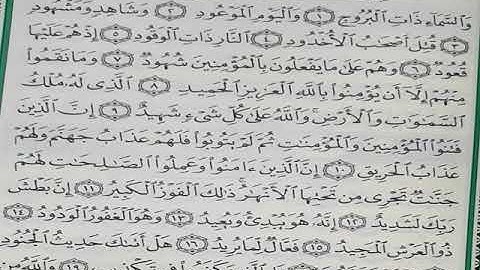 وَٱلسَّمَآءِ ذَاتِ ٱلْبُرُوجِ ١ وَٱلْيَوْمِ ٱلْمَوْعُودِ ٢ وَشَاهِدٍ وَمَشْهُودٍ
٣ قُتِلَ أَصْحَٰبُ ٱلْأُخْدُودِ ٤ ٱلنَّارِ ذَاتِ ٱلْوَقُودِ ٥ إِذْ هُمْ عَلَيْهَا
قُعُودٌ ٦ وَهُمْ عَلَىٰ مَا يَفْعَلُونَ بِٱلْمُؤْمِنِينَ شُهُودٌ ٧ وَمَا نَقَمُوا۟
مِنْهُمْ إِلَّآ أَن يُؤْمِنُوا۟ بِٱللَّهِ ٱلْعَزِيزِ ٱلْحَمِيدِ ٨ ٱلَّذِى لَهُۥ مُلْكُ
ٱلسَّمَٰوَٰتِ وَٱلْأَرْضِ وَٱللَّهُ عَلَىٰ كُلِّ شَىْءٍ شَهِيدٌ ٩ إِنَّ ٱلَّذِينَ
فَتَنُوا۟ ٱلْمُؤْمِنِينَ وَٱلْمُؤْمِنَٰتِ ثُمَّ لَمْ يَتُوبُوا۟ فَلَهُمْ عَذَابُ جَهَنَّمَ وَلَهُمْ
عَذَابُ ٱلْحَرِيقِ ١٠ إِنَّ ٱلَّذِينَ ءَامَنُوا۟ وَعَمِلُوا۟ ٱلصَّٰلِحَٰتِ لَهُمْ
جَنَّٰتٌ تَجْرِى مِن تَحْتِهَا ٱلْأَنْهَٰرُ ذَٰلِكَ ٱلْفَوْزُ ٱلْكَبِيرُ ١١ إِنَّ بَطْشَ
رَبِّكَ لَشَدِيدٌ ١٢ إِنَّهُۥ هُوَ يُبْدِئُ وَيُعِيدُ ١٣ وَهُوَ ٱلْغَفُورُ ٱلْوَدُودُ ١٤
ذُو ٱلْعَرْشِ ٱلْمَجِيدُ ١٥ فَعَّالٌ لِّمَا يُرِيدُ ١٦ هَلْ أَتَىٰكَ حَدِيثُ ٱلْجُنُودِ